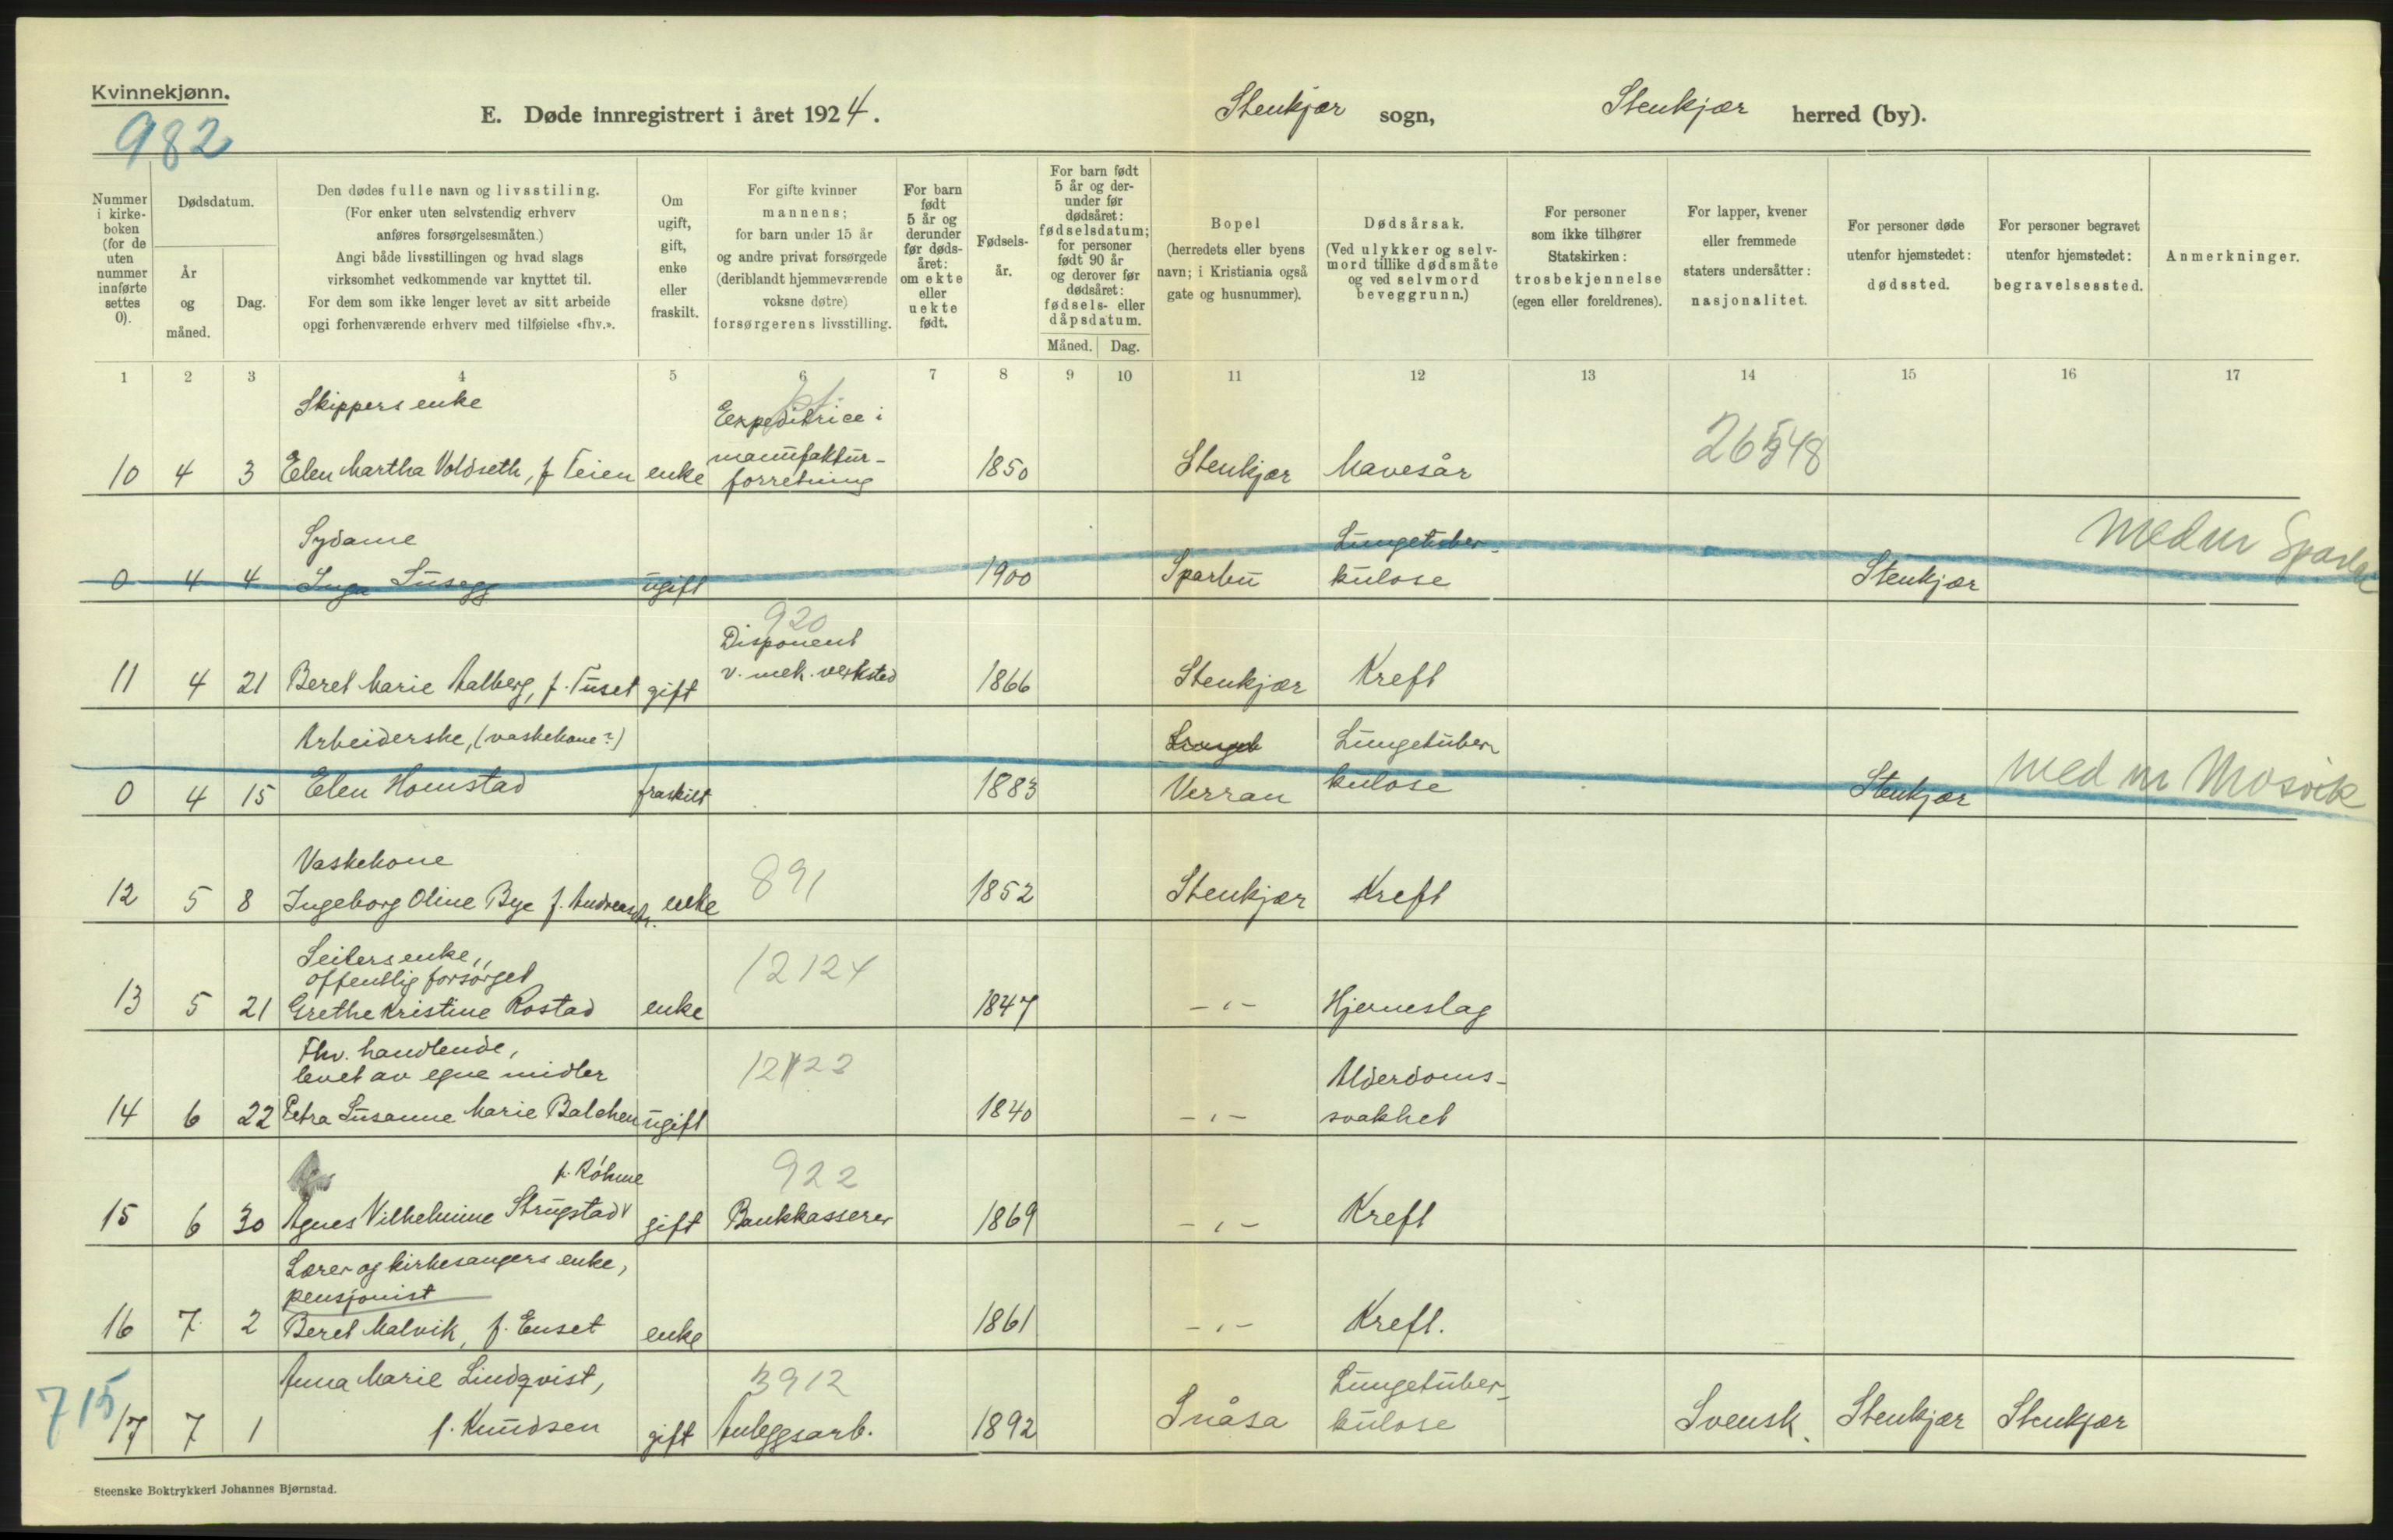 Kvinnekjønn.
982
E. Døde innregistrert i året 1924.
Stenkjær sogn,
Stenkjær herred (by).
Nummer i kirke-boken (for de uten nummer innførte settes 0).
Dødsdatum.
År og måned.
Dag.
Den dødes fulle navn og livsstiling.
(For enker uten selvstendig erhverv
anføres forsørgelsesmåten.)
Angi både livsstillingen og hvad slags
virksomhet vedkommende var knyttet til.
For dem som ikke lenger levet av sitt arbeide
opgi forhenværende erhverv med tilføielse «fhv.».
Om ugift, gift, enke eller fraskilt.
For gifte kvinner
mannens;
for barn under 15 år
og andre privat forsørgede
(deriblandt hjemmeværende
voksne døtre)
forsørgerens livsstilling.
For barn født 5 år og derunder før døds-året: om ekte eller uekte født.
Fødsels-år.
For barn født 5 år og der-under før dødsåret: fødselsdatum; for personer født 90 år og derover før dødsåret: fødsels- eller dåpsdatum.
Måned. Dag.
Bopel
(herredets eller byens
navn; i Kristiania også
gate og husnummer).
Dødsårsak.
(Ved ulykker og selv-
mord tillike dødsmåte
og ved selvmord
beveggrunn.)
For personer
som ikke tilhører
Statskirken:
trosbekjennelse
(egen eller foreldrenes).
For lapper, kvener
eller fremmede
staters undersåtter:
nasjonalitet.
For personer døde
utenfor hjemstedet:
dødssted.
For personer begravet
utenfor hjemstedet:
begravelsessted.
Anmerkninger.
1 2 3 4 5 6 7 8 9 10 11 12 13 14 15 16 17
Skippers enke
Expeditrice i
manufaktur-
26548
10 4 3 Elen Martha Voldseth, f Teien enke forretning 1850 Stenkjær Mavesår
Sydame
Lungetuber-
Medm Sparbu
0 4 4 Inga Susegg ugift 1900 Sparbu kulose Stenkjær
920
Disponent
11 4 21 Beret Marie Aalberg, f. Tuset gift v. mek. verksted 1866 Stenkjær Kreft
Arbeiderske, (vaskekone?)
Lungetuber
0 4 15 Elen Homstad fraskilt 1883 Verran kulose Stenkjær med m Mosvik
Vaskekone
891
12 5 8 Ingeborg Oline Bye f. Andreasdtr. enke 1852 Stenkjær Kreft
Leilers enke,
offentlig forsørget
12124
13 5 21 Grethe Kristine Rostad enke 1847 -"- Hjerneslag
Fhv. handlende,
levet av egne midler
12122
Alderdoms-
14 6 22 Petra Susanne Marie Balchen ugift 1840 -"- svakhet
f. Röhme
922
15 6 30 Agnes Vilhelmine Strugstad gift Bankkasserer 1869 -"- Kreft
Lærer og kirkesangers enke,
pensjonist
16 7 2 Beret Malvik, f. Euset enke 1861 -"- Kreft.
Anna Marie Lindqvist,
3912
Lungetuber-
715
17 7 1 f. Knudsen gift Anleggsarb. 1892 Snåsa kulose Svensk. Stenkjær Stenkjær
Steenske Boktrykkeri Johannes Bjørnstad.